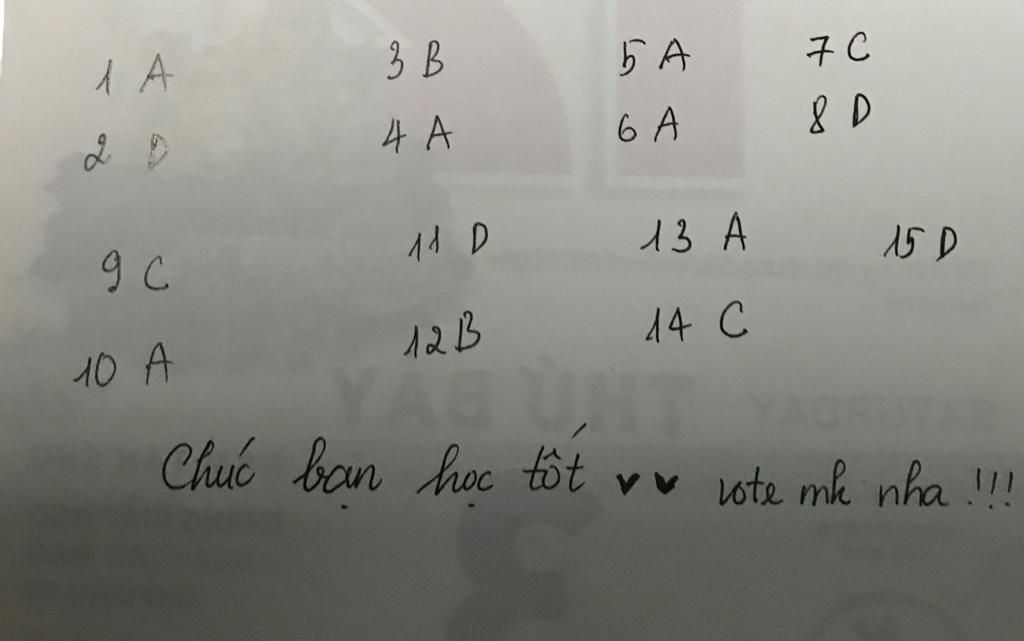 1 A 3 B 5 A 7 C
2 D 4 A 6 A 8 D
9 C 11 D 13 A 15 D
10 A 12 B 14 C
Chúc bạn học tốt ♥♥ vote mk nha !!!
THỨ BẢY
SATURDAY
3